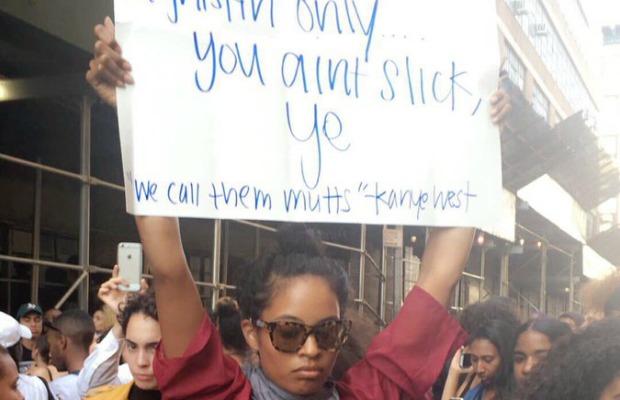 only....
you aint slick,
ye
"we call them mutts" -kanye west